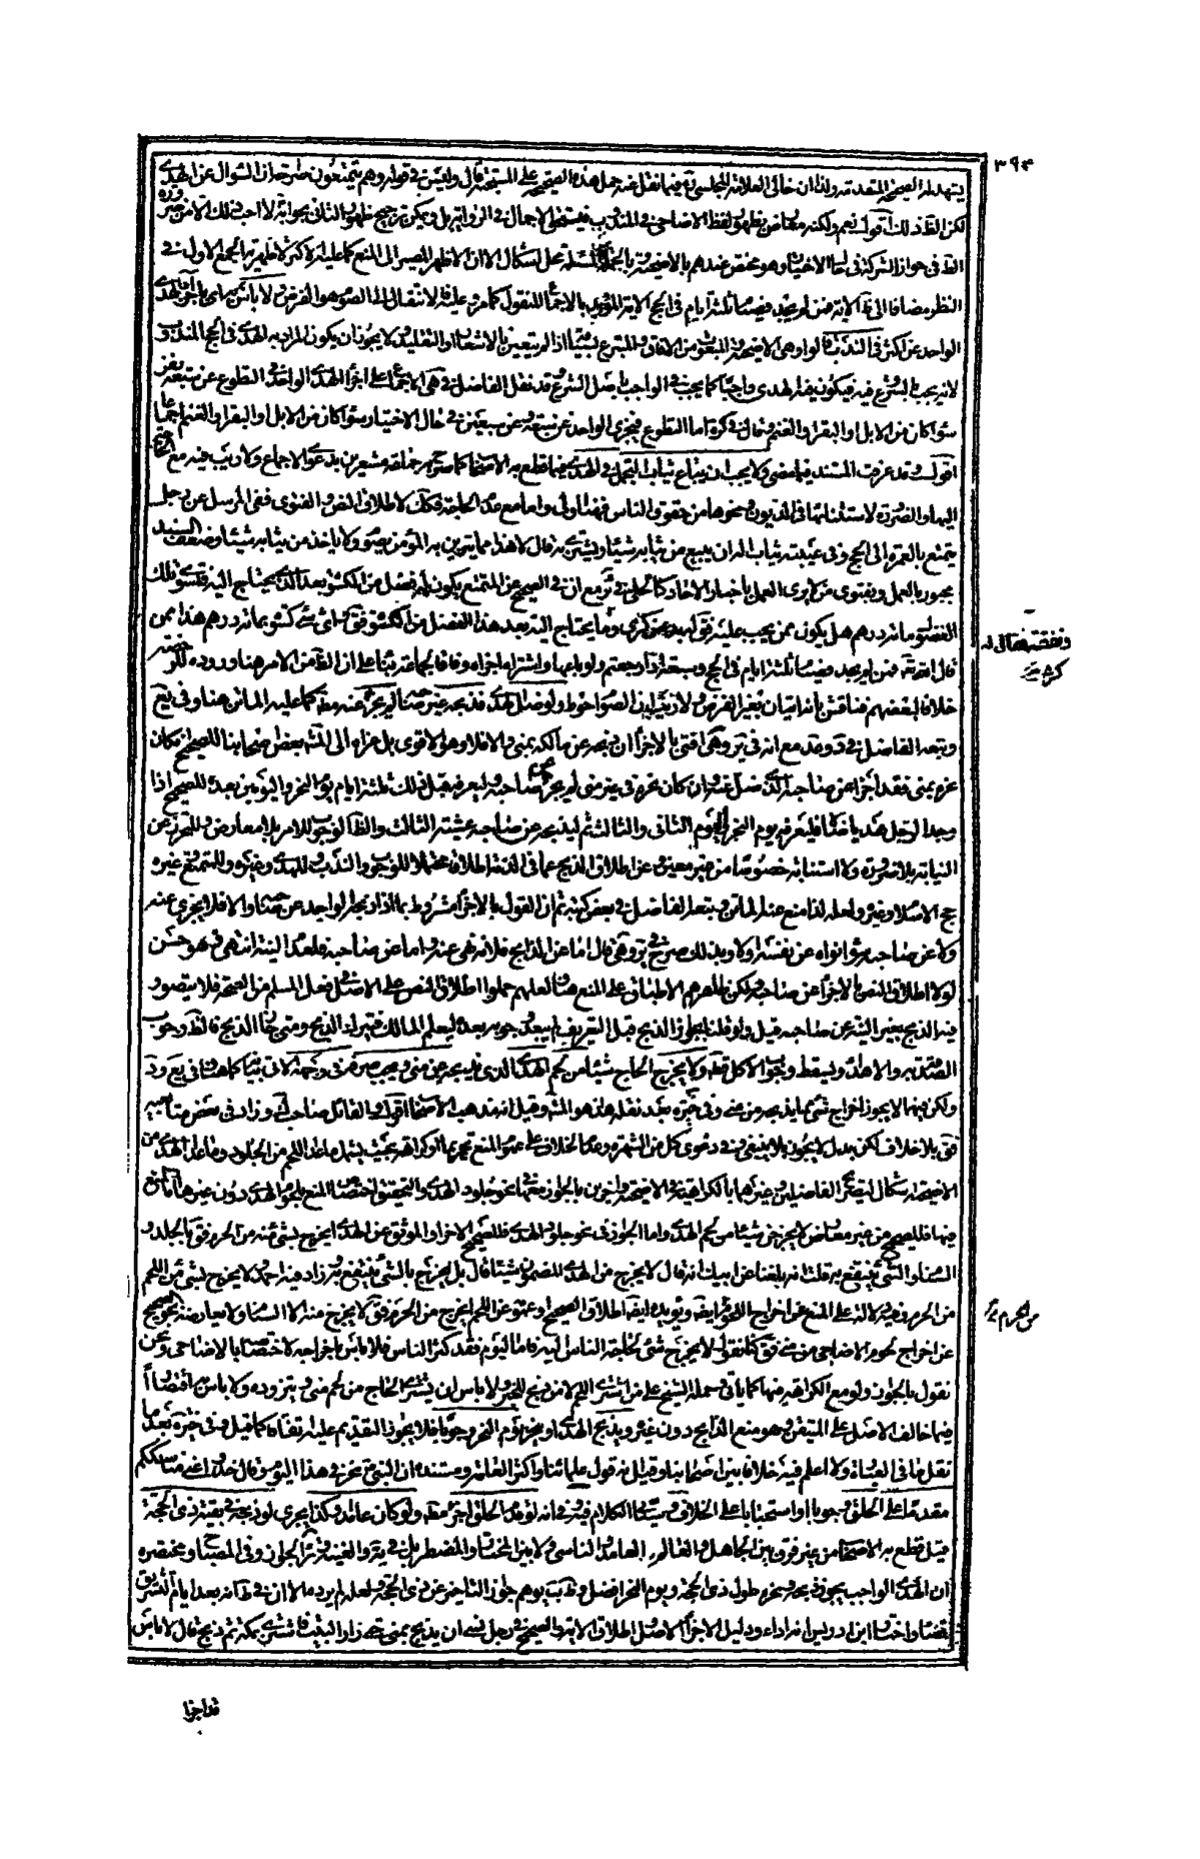 ٣٩٤
يشهد له الصحيح المتقدمة ولذا ان خالي العلامة المجلسي فيما نقل عنه حمل هذه الصحيحة على المستحبة قال وليس في قوله وهم متمتعون صراحة ان السؤال عن الهدي
لكن الظ ذلك اقول نعم ولكنه معارض بظهور لفظ الاضاحي في المندوب فيسقط الاجمال في الرواية بل ويمكن ترجيح ظهور الثاني بجوابه لا احب ذلك الا من ضرورة
الظ في جواز الشركة في حال الاختيار وهو مختص عندهم بالاضحية وبالجملة المسئلة محل اشكال الا ان الاظهر المصير الى المنع كما عليه الاكثر لا ظهرية الجمع الاول في
النظر مضافا الى الاية فمن لم يجد فصيام ثلثة ايام في الحج الاية المؤيد بالاجماع المنقول كما مر وعليه فالانتقال الى الصوم هو الفرض ولا باس
الواحد عن اكثر في الندب قالوا وهي الاضحية والمبعوث من الافاق والمتبرع بسياقه اذا لم يتعين بالاشعار او التقليد ولا يجوز ان يكون المراد به الهدي في الحج المندوب
لانه يجب بالشروع فيه فيكون فيه الهدي واجبا كما يجب في الواجب باصل الشرع وقد نقل الفاضل في هي الاجماع على اجزاء الهدي الواحد في التطوع عن سبعة نفر
سواء كان من الابل او البقر او الغنم وقال في كرة اما التطوع فيجزي الواحد عن سبعة وعن سبعين في حال الاختيار سواء كان من الابل او البقر او الغنم اجماعا
اقول وقد عرفت المستند فيما مضى ولا يجب ان يباع ثياب التجمل في الهدي فيما قطع به الاصحاب كما صرح به جماعة مشعرين بدعوى الاجماع ولا ريب فيه مع الحاجة
اليها والضرورة لاستثنائها في الديون ونحوها من حقوق الناس فهنا اولى واما مع عدم الحاجة فكك لاطلاق النص والفتوى ففي المرسل عن رجل
يتمتع بالعمرة الى الحج وفي عيبته ثياب اله ان يبيع من ثيابه شيئا ويشتري به قال لا هذا مما يتزين به المؤمن يصوم ولا ياخذ من ثيابه شيئا وضعف السند
مجبور بالعمل وبفتوى من لا يرى العمل باخبار الاحاد كالحلي في ئر مع ان في الصحيح عن المتمتع يكون له فضل من الكسوة بعد الذي يحتاج اليه فتسوي تلك
الفضول مائة درهم هل يكون ممن يجب عليه فقال له بد من كرى وما يحتاج اليه بعد هذا الفضل من الكسوة فقال واي شئ كسوة بمائة درهم هذا ممن
قال الله تعالى فمن لم يجد فصيام ثلثة ايام في الحج وسبعة اذا رجعتم ولو باعها واشتراه اجزاه وفاقا لجماعة بناء على ان الظ من الامر هنا وروده للرخصة
خلافا لبعضهم فناقش بانه اتيان بغير الفرض ولا ريب ان الصوم احوط ولو ضل الهدي فذبحه غير صاحبه لم يجز عنه مط كما عليه الماتن هنا وفي يع
وتبعه الفاضل في عد وعد مع انه في ير وهي افتى بالاجزاء ان ذبحه عن مالكه بمنى والا فلا وهو الاقوى بل عزاه الى المشه بعض اصحابنا للصحيح ان كان
نحره بمنى فقد اجزا عن صاحبه الذي ضل عنه وان كان نحره في غير منى لم يجز عن صاحبه وليعرفه قبل ذلك ثلثة ايام يوم النحر واليومين بعده للصحيح اذا
وجد الرجل هديا ضالا فليعرفه يوم النحر واليوم الثاني والثالث ثم ليذبحه عن صاحبه عشية الثالث والظ الوجوب للامر بلا معارض وللتحرز عن
النيابة بلا ضرورة ولا استنابة خصوصا من غير معين
حج الاسلام وغيره ولعله لذا منع عنه الماتن وتبعه الفاضل في بعض كتبه ثم ان القول بالاجزاء مشروط بما اذا ذبحه الواجد عن صاحبه والا فلا يجزي عنه
ولا عن صاحبه سواء نواه عن نفسه او لا وبذلك صرح في ير وهي قال اما عن الذابح فلانه نهى عنه واما عن صاحبه فلعدم النية انتهى وهو حسن
لولا اطلاق النص بالاجزاء عن صاحبه ولكن ظاهرهم الاطباق على المنع هنا ولعلهم حملوا اطلاق النص على الاصل في فعل المسلم من الصحة فلا يتصور
فيه الذبح بغير النية عن صاحبه قيل ولو قلنا بجواز الذبح قبل التعريف لم يبعد وجوبه بعده ليعلم المالك فيترك الذبح ومتى جاز الذبح فالظ وجوب
الصدقة به والاهداء ويسقط وجوب الاكل قطعا ولا يخرج الحاج شيئا من لحم الهدي الذي ذبحه عن منى ويجب صرفه في وجهه الاتي بيانها كما هنا وفي يع وعد
ولكن فيهما لا يجوز اخراج شئ مما يذبحه من منى وفي خيره بعد نقله هذا هو المشه وقيل انه مذهب الاصحاب اقول والقائل صاحب ك وزاد في بعض متابعيه
فق بلا خلاف لكن بدل لا يجوز بلا ينبغي وفي دعوى كل من الشهرة وعدم الخلاف على عموم المنع تحريما او كراهة بحيث يشمل ماعدا اللحم من الجلود وماعدا الهدي من
الاضحية اشكال لتصريح الفاضلين وغيرهما بالكراهة في الاضحية واخرين بالجواز معها في نحو جلود الهدي والتحقيق اختصاص المنع بلحم الهدي دون غيرها
فيها فللصحيح من غير معارض لا يخرجن شيئا من لحم الهدي واما الجواز في نحو جلود الهدي فللصحيح الاخر او الموثق عن الهدي ايخرج بشئ منه من الحرم فقال بالجلد و
السنام والشئ ينتفع به قلت انه بلغنا عن ابيك انه قال لا يخرج من الهدي المضمون شيئا قال بل يخرج بالشئ ينتفع به وزاد فيه احمد ولا يخرج بشئ من اللحم
من الحرم وفيه دلالة على المنع عن اخراج اللحم ايضا ويؤيده ايضا اطلاق الصحيح او عمومه عن اللحم ايخرج من الحرم فقال لا يخرج منه الا السنام ولا يعارضه الصحيح
عن اخراج لحوم الاضاحي من منى فقال كنا نقول لا يخرج شئ لحاجة الناس اليه فاما اليوم فقد كثر الناس فلا باس باخراجه لاختصاصه بالاضاحي ونحن
نقول بالجواز ولو مع الكراهة فيها كما ياتي وحمله الشيخ على من اشترى اللحم لا من ذبح للخبر ولا باس ان يشتري الحاج من لحم منى ويتزوده ولا باس به اقتصارا
فيما خالف الاصل على المتيقن وهو منع الذابح دون غيره ويذبح الهدي او ينحر يوم النحر وجوبا فلا يجوز التقديم عليه اتفاقا كما قيل وفي خيره بعد ما
نقل ما في العبارة ولا اعلم فيه خلافا بين اصحابنا وقيل انه قول علمائنا واكثر العامة ومستنده ان النبي ص نحر في هذا اليوم وقال خذوا عني مناسككم
مقدما على الحلق وجوبا او استحبابا على الخلاف وسيأتي الكلام فيه وفي انه لو قدم الحلق اجزاه مط ولو كان عامدا وكذا يجزي لو ذبحه في بقية ذي الحجة
قيل قطع به الاصحاب من غير فرق بين الجاهل والعالم العامد والناسي ولا بين المختار والمضطر بل في ية والغنية وئر الجواز وفي المصباح ومختصره
ان الهدي الواجب يجوز ذبحه ونحره طول ذي الحجة ويوم النحر افضل وظ ب يوهم جواز التاخير عن ذي الحجة ولعله لم يرده الا ان في ط انه بعد ايام التشريق
قضاء واختار ابن ادريس انه اداء ودليل الاجزاء الاصل واطلاق الاية والصحيح في رجل نسي ان يذبح بمنى حتى زار البيت فاشترى بمكة ثم ذبح قال لا باس
من الحرم
قد اجزا